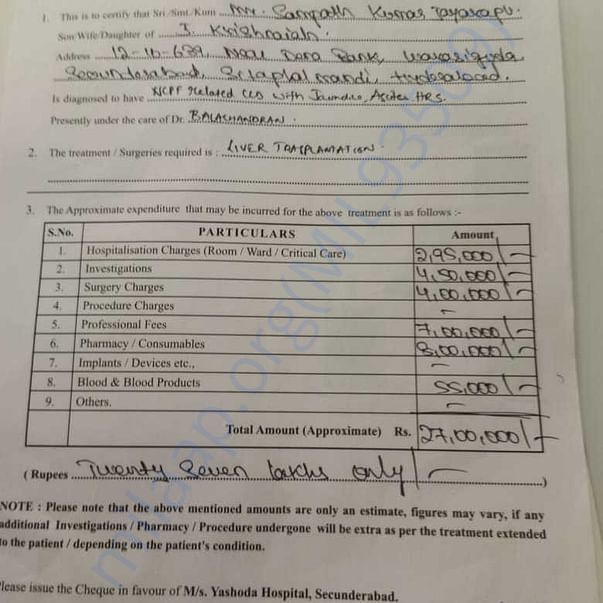 1. This is to certify that Sri /Smt./Kum Mr. Sampath Kumar Jayarapu.
Son/Wife/Daughter of J. Krishnaiah.
Address 12-10-639, Near Dena Bank, Warasiguda,
Secunderabad, Sitaphalmandi, Hyderabad.
Is diagnosed to have NCPF related CLD with Jaundice, Ascites HRS.
Presently under the care of Dr. BALACHANDRAN.
2. The treatment / Surgeries required is : LIVER TRASPLANTATION.
3. The Approximate expenditure that may be incurred for the above treatment is as follows :-
S.No. PARTICULARS Amount
1. Hospitalisation Charges (Room / Ward / Critical Care) 2,95,000/-
2. Investigations 4,50,000/-
3. Surgery Charges 4,00,000/-
4. Procedure Charges -
5. Professional Fees 7,00,000/-
6. Pharmacy / Consumables 8,00,000/-
7. Implants / Devices etc., -
8. Blood & Blood Products 55,000/-
9. Others. -
Total Amount (Approximate) Rs. 27,00,000/-
( Rupees Twenty Seven lakhs only/- )
NOTE : Please note that the above mentioned amounts are only an estimate, figures may vary, if any
additional Investigations / Pharmacy / Procedure undergone will be extra as per the treatment extended
to the patient / depending on the patient's condition.
Please issue the Cheque in favour of M/s. Yashoda Hospital, Secunderabad.